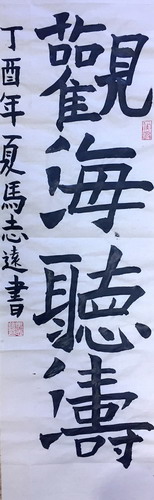 觀海聽濤
丁酉年夏馬志遠書